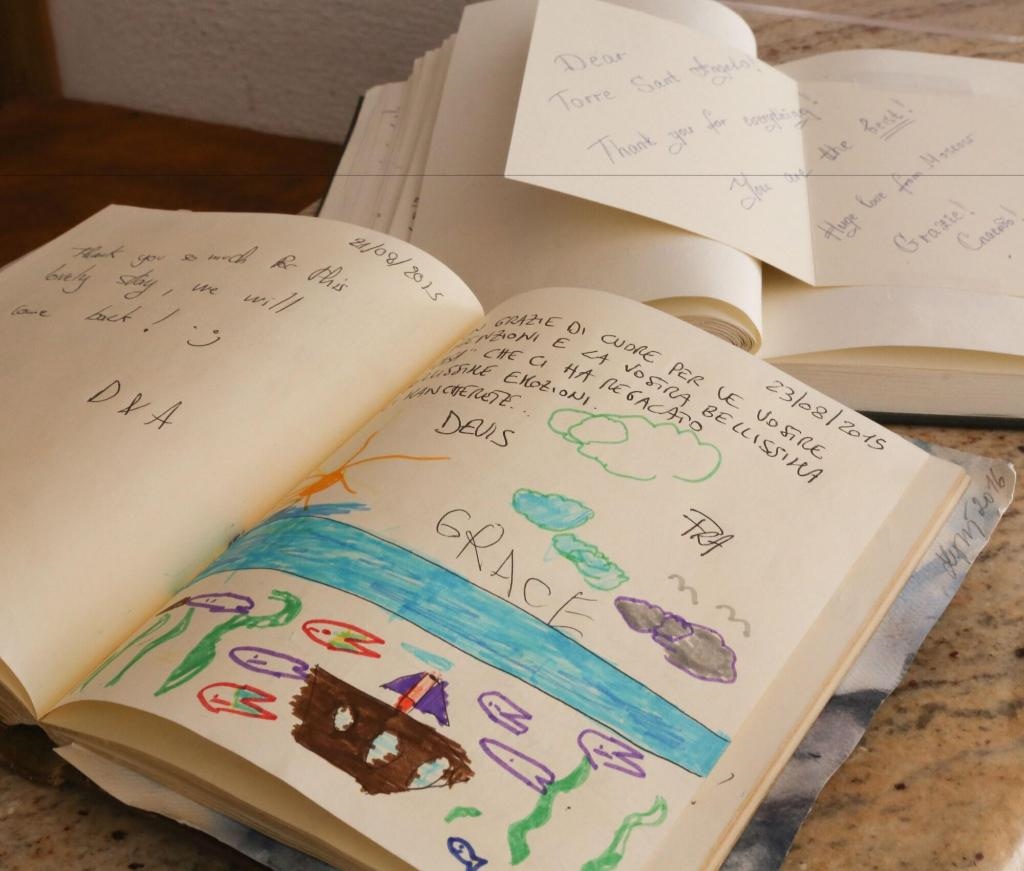 21/08/2015
Thank you so much for this
lovely stay, we will
come back! :)
D & A
23/08/2015
GRAZIE DI CUORE PER LE VOSTRE
E LA VOSTRA BELLISSIMA
CHE CI HA REGALATO
EMOZIONI.
DEVIS
FRA
GRACE
Dear
Torre Sant Angelo!
Thank you for everything!
You are the best!
Huge love from
Grazie!
2016